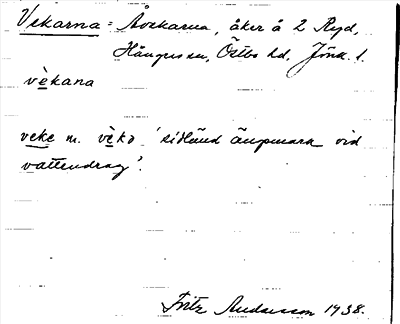 Vekarna = Åvekarna, åker å 2 Ryd,
Hånger sn, Östbo hd, Jönk. l.
vèkana
veke m. vèkə 'sidländ ängsmark vid
vattendrag'.
Fritz Andersson 1938.